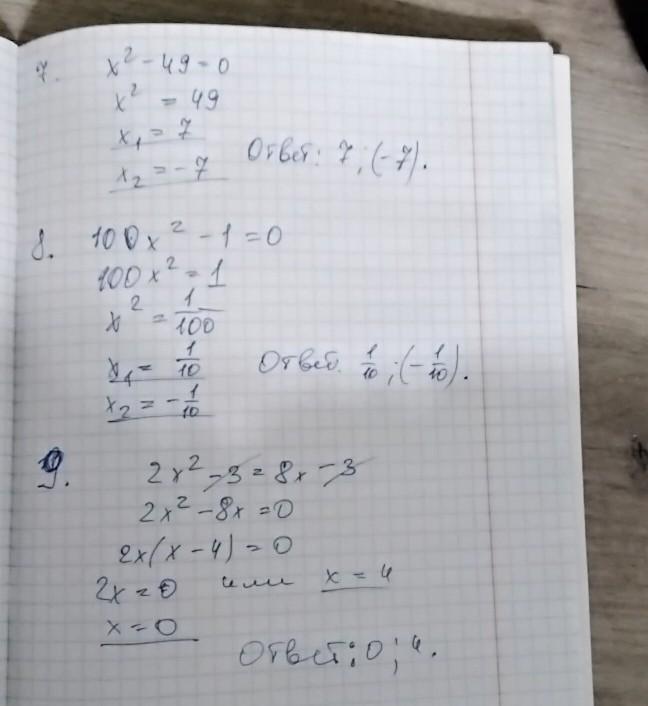 7. x² - 49 = 0
x² = 49
x₁ = 7
x₂ = - 7 Ответ: 7; (-7).
8. 100x² - 1 = 0
100x² = 1
x² = 1/100
x₁ = 1/10 Ответ. 1/10; (-1/10).
x₂ = - 1/10
9. 2x² - 3 = 8x - 3
2x² - 8x = 0
2x(x - 4) = 0
2x = 0 или x = 4
x = 0
Ответ: 0; 4.